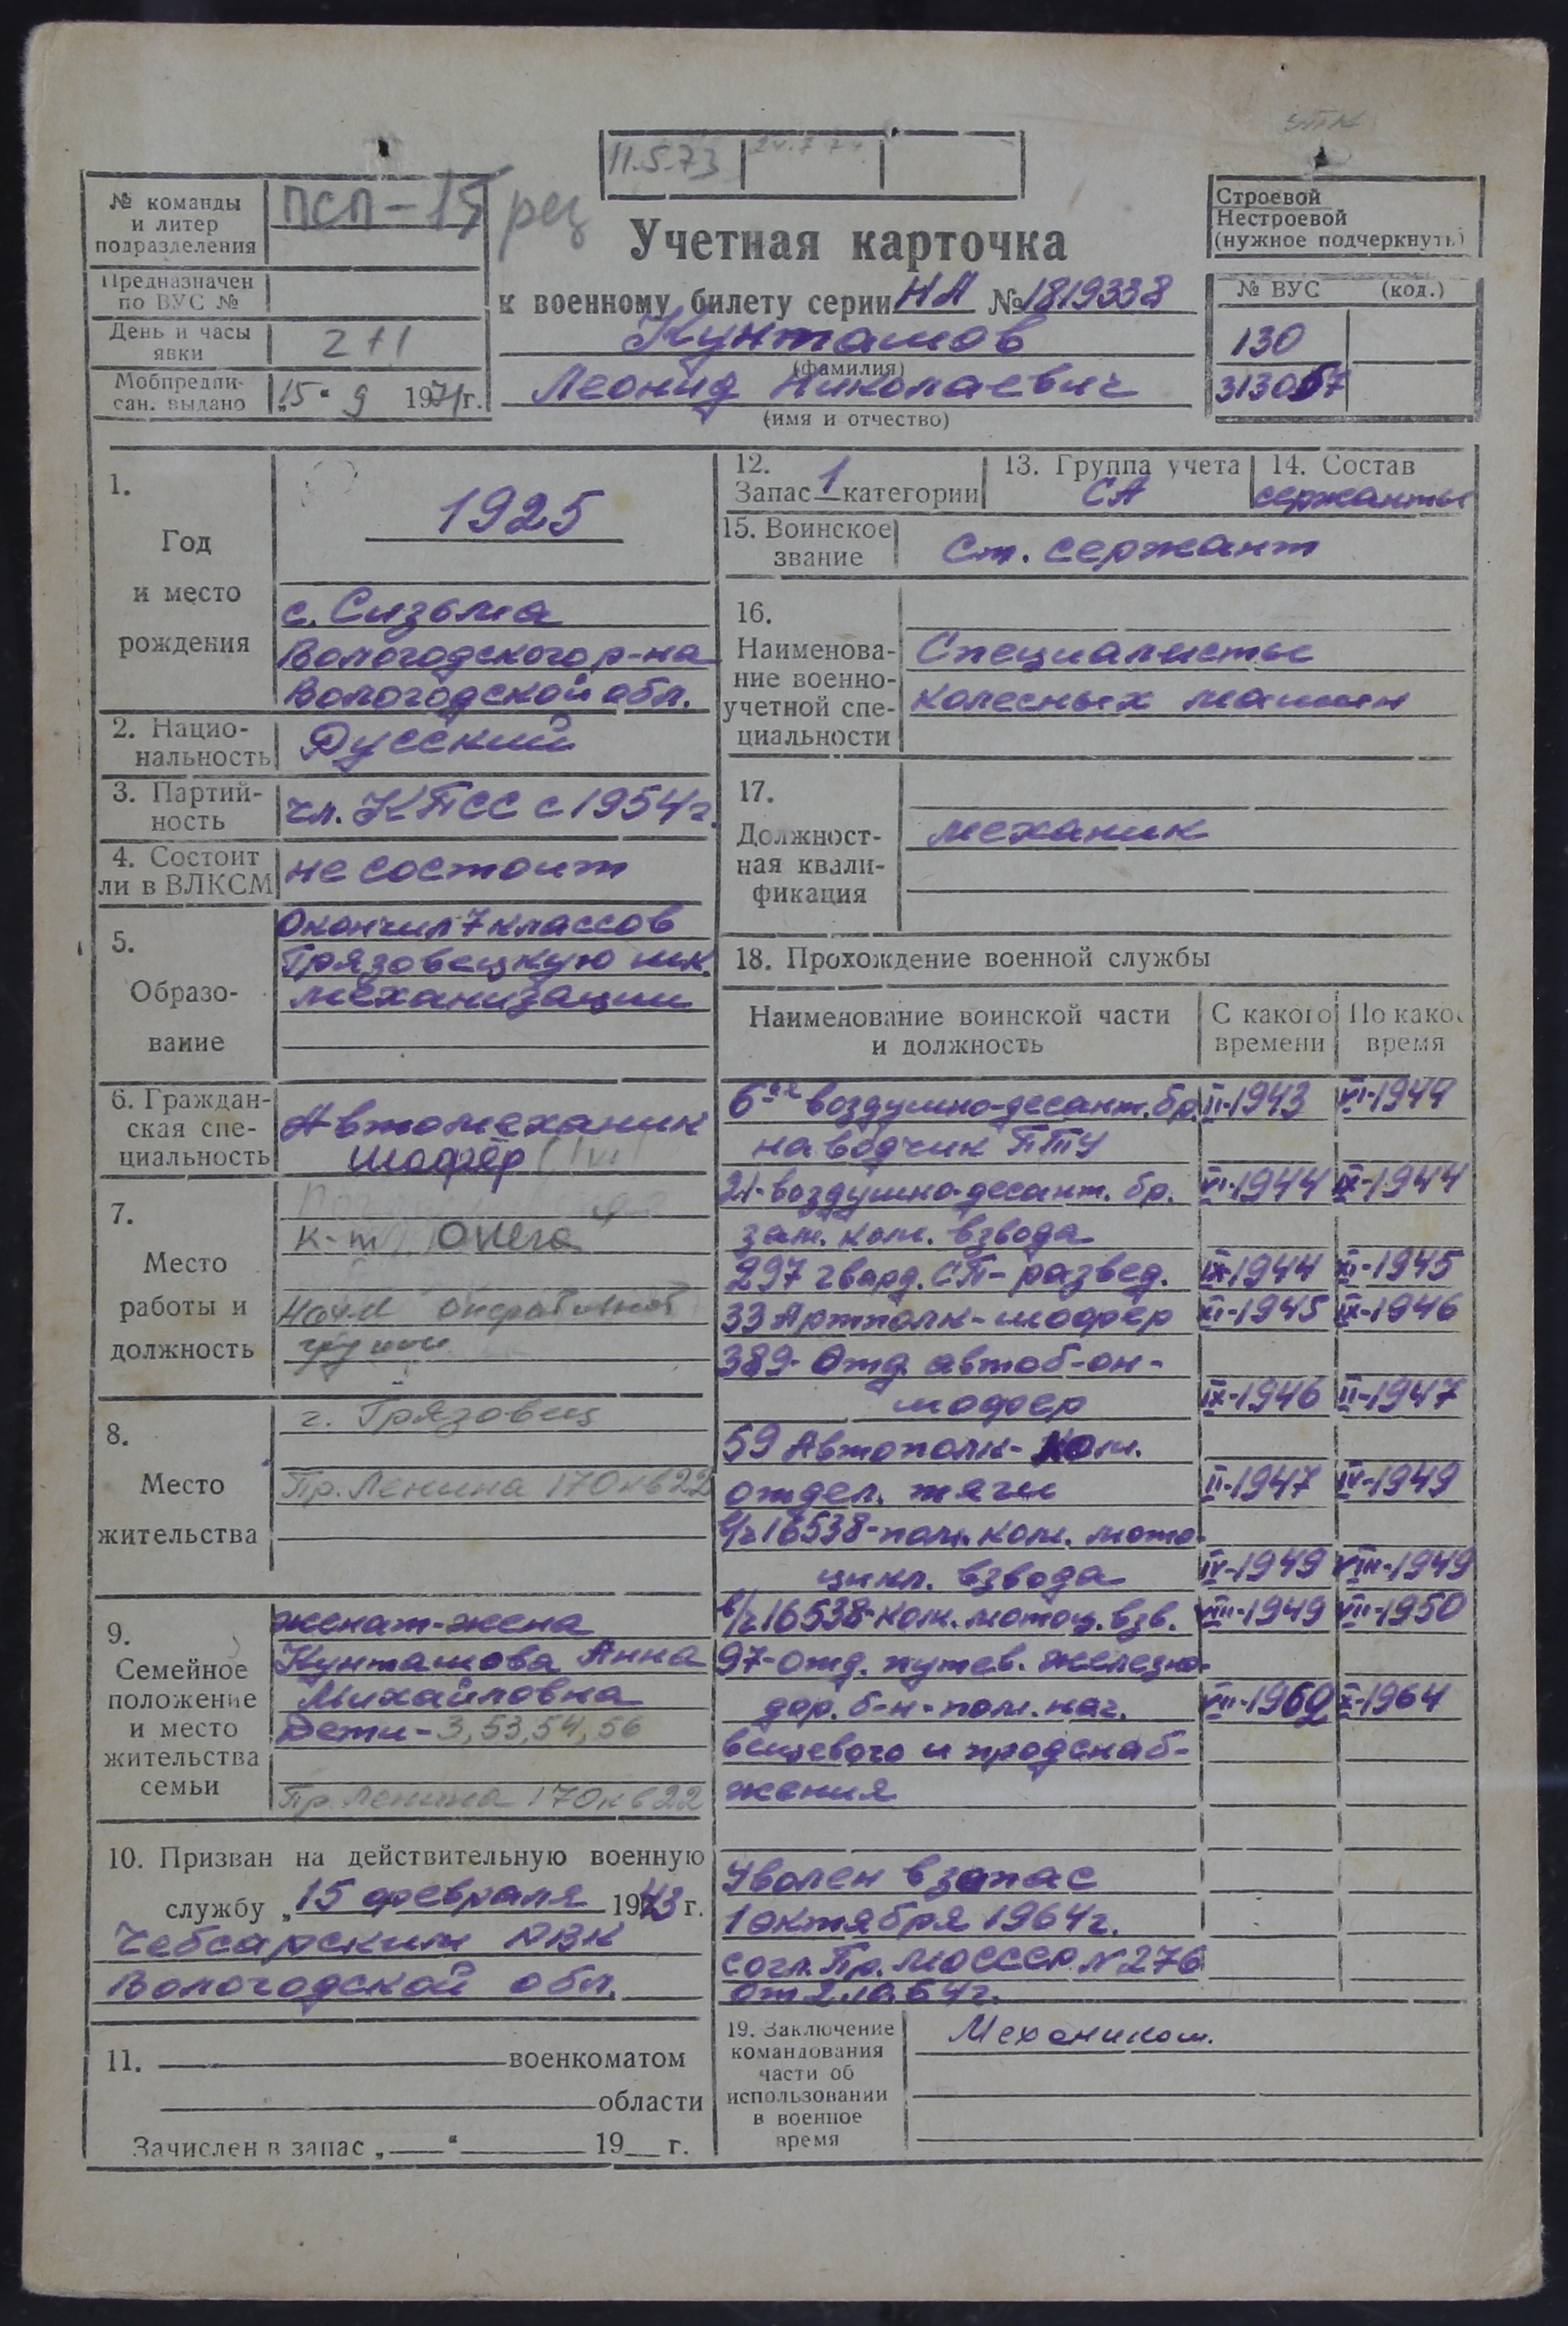 11.5.73
24.7.74
№ команды
и литер
подразделения
ПСП-15 рец
Предназначен
по ВУС №
День и часы
явки
2+1
Мобпредпи-
сан. выдано
„15" 9 1971г.
Учетная карточка
к военному билету серии НА № 1819338
Кунташов
(фамилия)
Леонид Николаевич
(имя и отчество)
Строевой
Нестроевой
(нужное подчеркнуть)
№ ВУС (код.)
130
313057
1.
Год
и место
рождения
1925
с. Сизьма
Вологодского р-на
Вологодской обл.
2. Нацио-
нальность
Русский
3. Партий-
ность
чл. КПСС с 1954г.
4. Состоит
ли в ВЛКСМ
не состоит
5.
Образо-
вание
Окончил 7 классов
Грязовецкую шк.
механизации
6. Граждан-
ская спе-
циальность
Автомеханик
шофёр
7.
Место
работы и
должность
к-т Онега
нач-к оперативной
группы
8.
Место
жительства
г. Грязовец
Пр. Ленина 170 кв 22
9.
Семейное
положение
и место
жительства
семьи
женат-жена
Кунташова Анна
Михайловна
Дети - 3, 53, 54, 56
Пр. Ленина 170 кв 22
10. Призван на действительную военную
службу „15 февраля 1943 г.
Чебсарским РВК
Вологодской обл.
11. военкоматом
области
Зачислен в запас „ “ 19 г.
12.
Запас 1 категории
13. Группа учета
СА
14. Состав
сержанты
15. Воинское
звание
Ст. сержант
16.
Наименова-
ние военно-
учетной спе-
циальности
Специалисты
колесных машин
17.
Должност-
ная квали-
фикация
механик
18. Прохождение военной службы
Наименование воинской части
и должность
С какого
времени
По какое
время
6-ая воздушно-десант. бр. II-1943 VI-1944
наводчик ПТУ
21-воздушно-десант. бр. VI-1944 IX-1944
зам. ком. взвода
297 гвард. СП - развед. IX-1944 XI-1945
33 Артполк - шофер XI-1945 IX-1946
389-Отд. автоб-он-
шофер IX-1946 II-1947
59 Автополк- ком.
отдел. тяги II-1947 IV-1949
в/ч 16538-пом. ком. мото-
цикл. взвода IV-1949 VIII-1949
в/ч 16538-ком. мотоц. взв. VIII-1949 VII-1950
97-отд. путев. железно-
дор. б-н-пом. нач. VII-1962 X-1964
вещевого и продснаб-
жения
Уволен в запас
1 октября 1964г.
согл. Пр. МО СССР N 276
от 2.10.64г.
19. Заключение
командования
части об
использовании
в военное
время
Механиком.